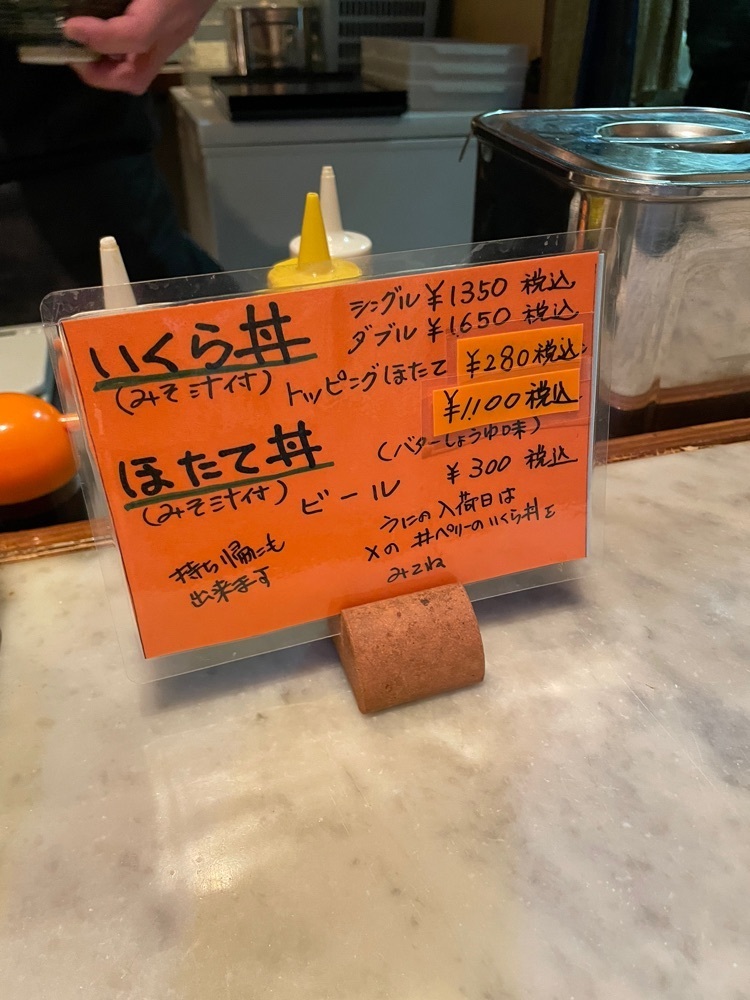 いくら丼 シングル ¥1350 税込
ダブル ¥1650 税込
(みそ汁付) トッピングほたて ¥280税込
ほたて丼 ¥1100税込
(バターしょうゆ味)
(みそ汁付) ビール ¥300 税込
持ち帰にも
出来ます
うにの入荷日は
Xの 丼ペリーのいくら丼を
みてね